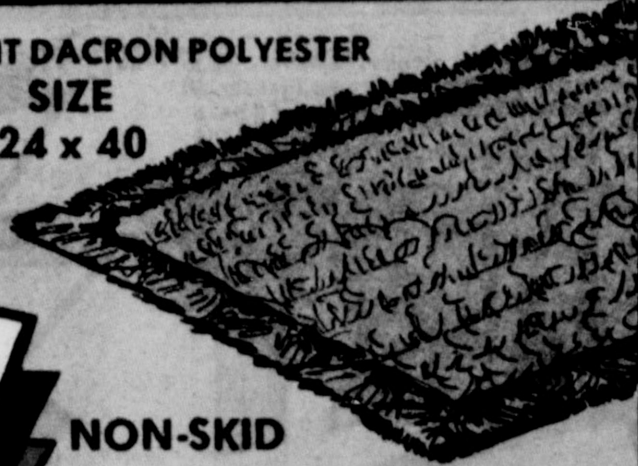 T DACRON POLYESTER
SIZE
24 x 40
NON-SKID